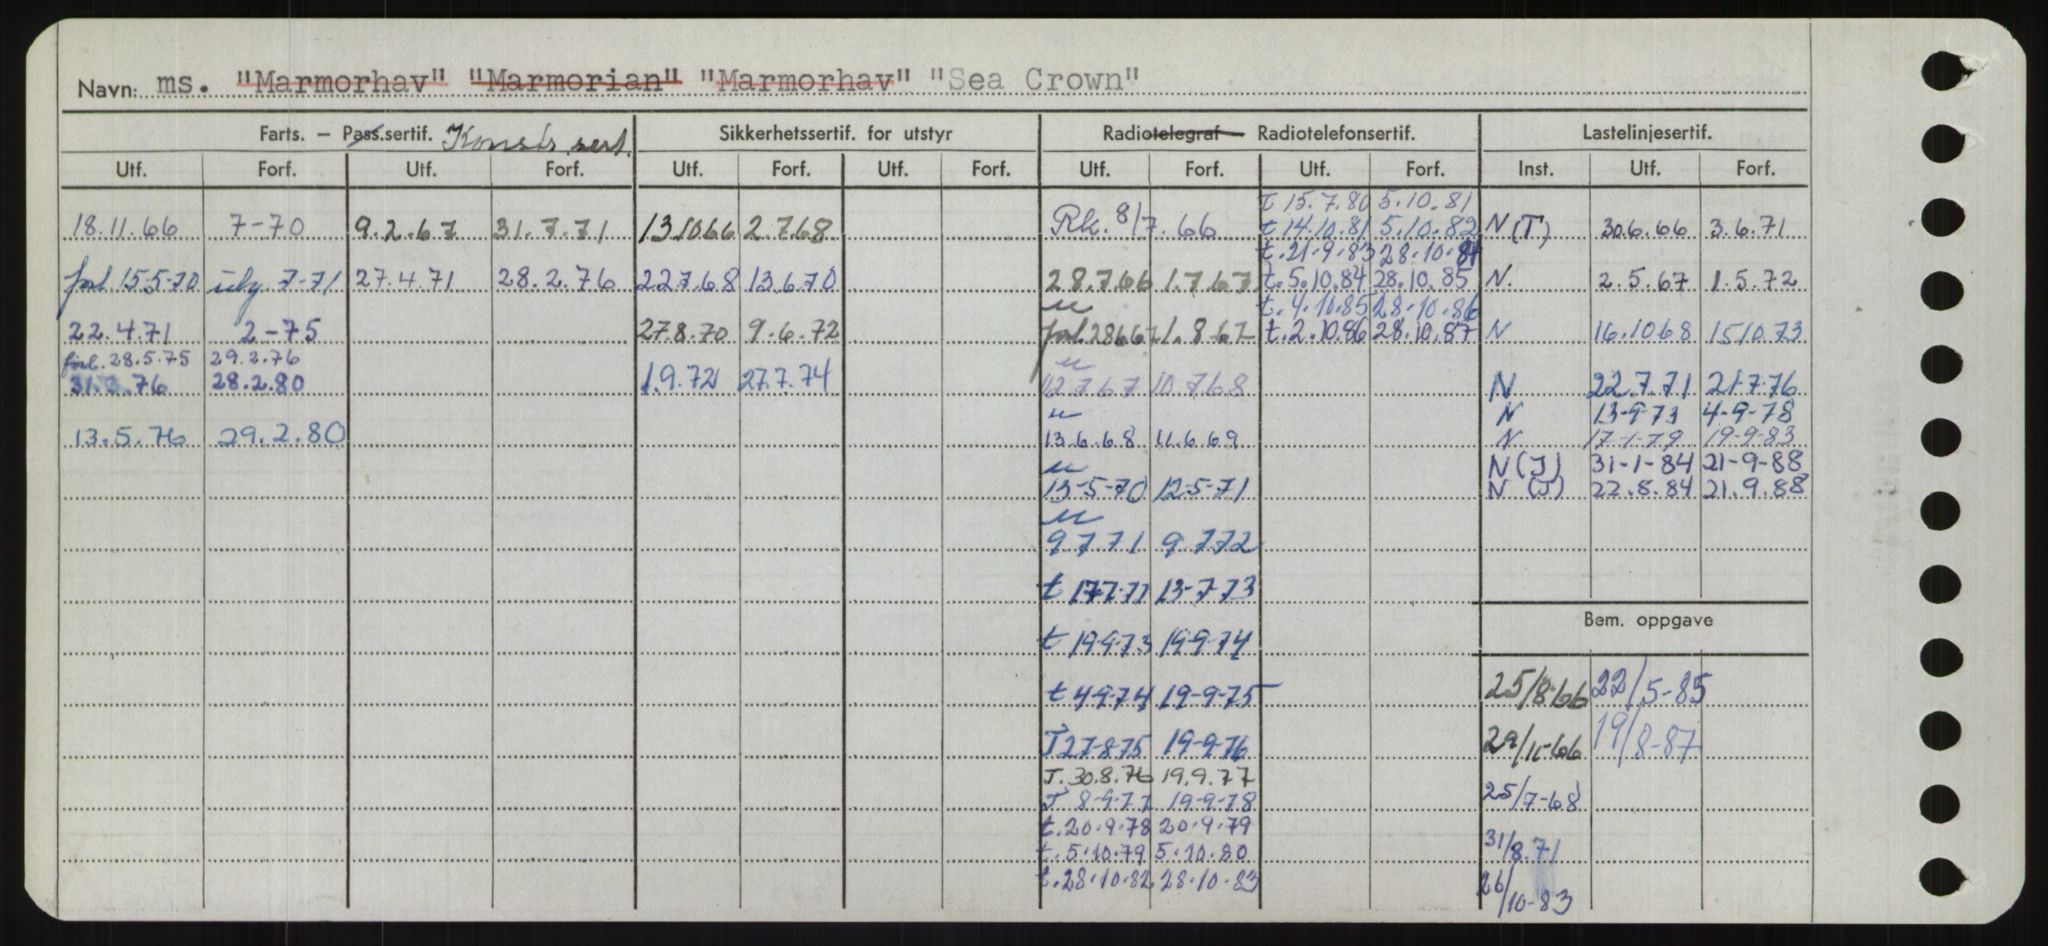 Navn: ms. "Marmorhav" "Marmorian" "Marmorhav" "Sea Crown"
Farts. – Pass.sertif. Konstr. sert. Sikkerhetssertif. for utstyr Radiotelegraf– Radiotelefonsertif. Lastelinjesertif.
Utf. Forf. Utf. Forf. Utf. Forf. Utf. Forf. Utf. Forf. Utf. Forf. Inst. Utf. Forf.
t 15.7.80 5.10.81
18.11.66 7-70 9.2.67 31.7.71 13.10.66 2.7.68 Rk. 8/7.66 t 14.10.81 5.10.82 N(T) 30.6.66 3.6.71
t.21-9.83 28-10-84
forl. 15.5.70 7-71 27.4.71 28.2.76 22.7.68 13.6.70 28.7.66 1.7.67 t.5.10.84 28.10.85 N. 2.5.67 1.5.72
u t.4.10.85 28.10.86
22.4.71 2-75 27.8.70 9.6.72 forl. 28.6.67 1.8.67 t.2.10.86 28.10.87 N 16.10.68 15.10.73
forl. 28.5.75 29.2.76 u
31.3.76 28.2.80 1.9.72 27.7.74 12.7.67 10.7.68 N 22.7.71 21.7.76
u N 13-9-73 4-9-78
13.5.76 29.2.80 13.6.68 11.6.69 N 17-1-79 19-9-83
u N(J) 31-1-84 21-9-88
13-5-70 12-5-71 N (J) 22.8.84 21.9.88
u
9.7.71 9.7.72
t 17.7.72 13-7-73
Bem. oppgave
t 19-9-73 19-9-74
t 4-9-74 19-9-75 25/8-66 22/5-85
T 27-8-75 19-9-76 29/11-66 19/8-87
T. 30.8.76 19.9.77
T 8-9-77 19-9-78 25/7-68
t. 20.9.78 20.9.79
t. 5.10.79 5.10.80 31/8.71
t. 28.10.82 28.10.83 26/10-83